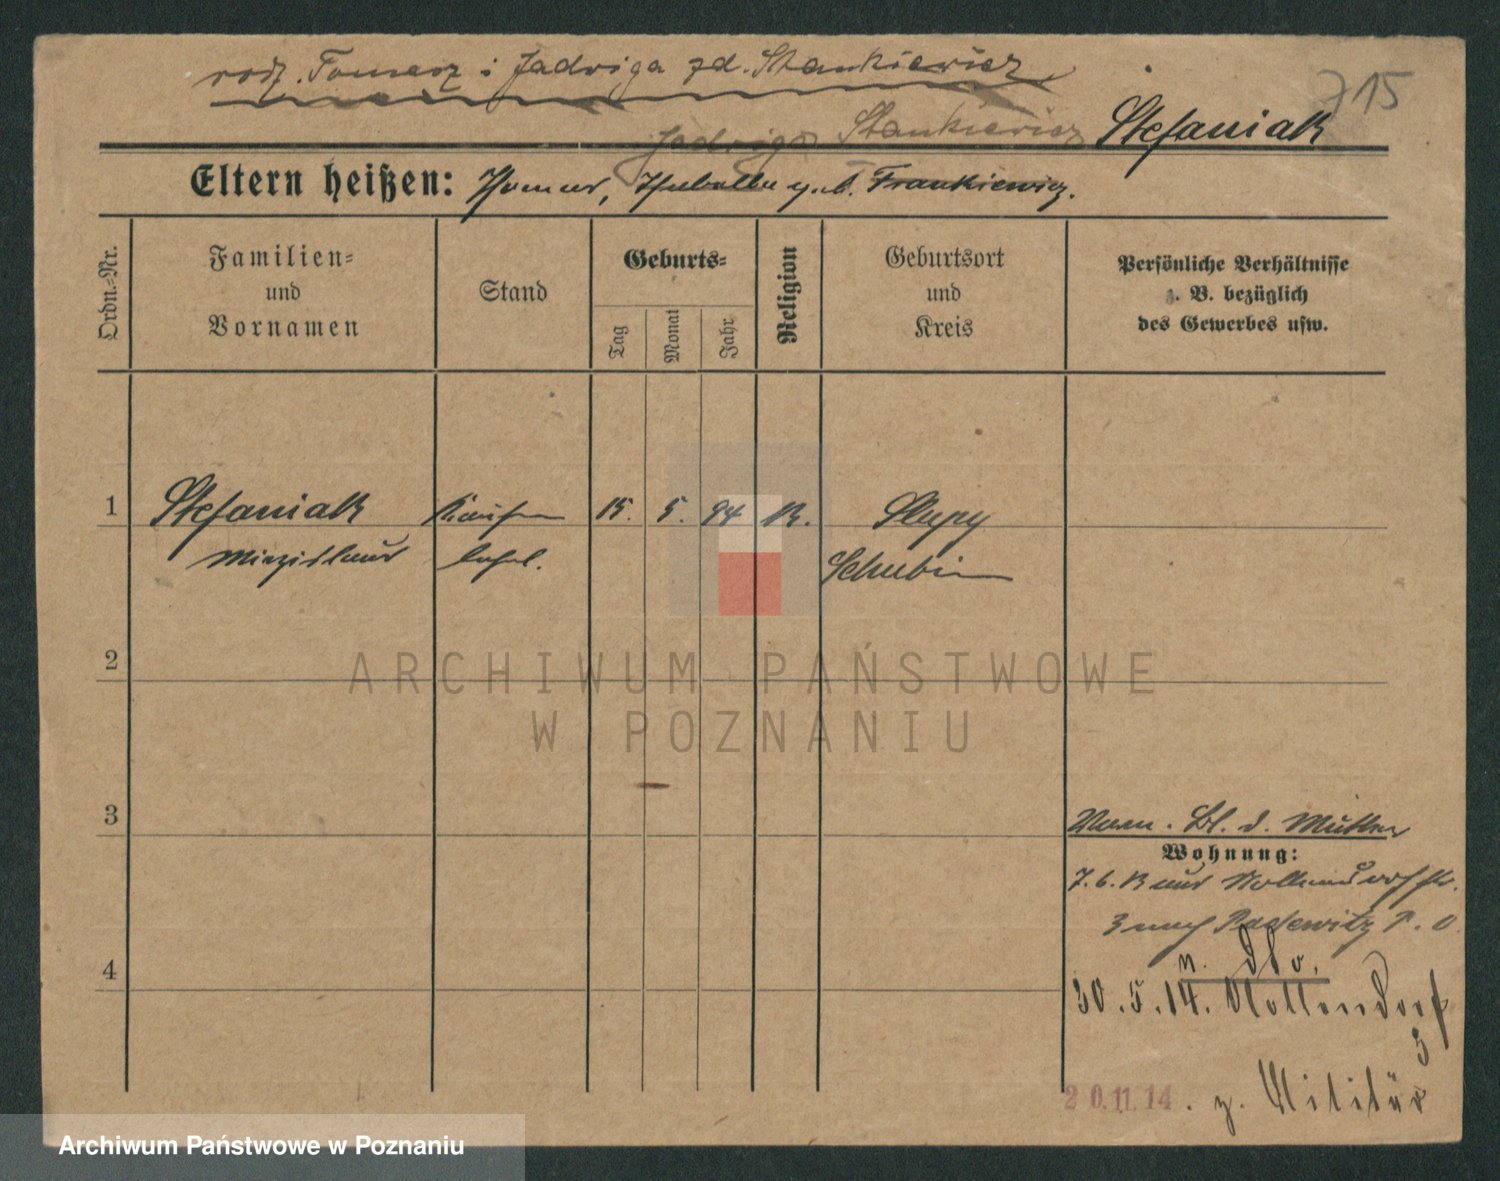 rodz. Tomasz i Jadwiga zd. Stankiewicz
715
Jadwiga Stankiewicz
Stefaniak
Eltern heißen: Thomas, Isabella geb. Frankiewicz.
Ordn.-Nr.
Familien-
und
Vornamen
Stand
Geburts-
Tag
Monat
Jahr
Religion
Geburtsort
und
Kreis
Persönliche Verhältnisse
z. B. bezüglich
des Gewerbes usw.
1 Stefaniak Kaufm 15. 5. 94 K. Slupy
Miezislaus Schubin
ARCHIWUM PAŃSTWOWE
2
W POZNANIU
3
Bl. d. Mutter
Wohnung:
7. 6. 13 aus
3 nach P. O.
n. dto.
4
30.5.14. Nollendorf
3
20.11.14. z. Militär
Archiwum Państwowe w Poznaniu